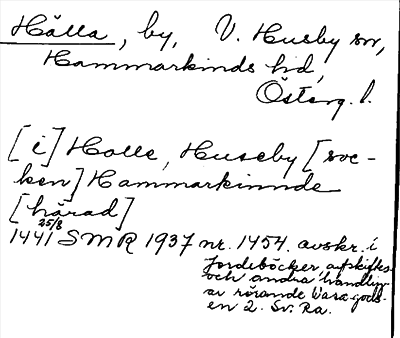 Hålla, by, V. Husby sn,
Hammarkinds hd,
Österg. l.
[i] Holle, Huseby [soc-
ken] Hammarkinnde
[härad]
25/8
1441 SMR 1937 nr. 1454. avskr. i
Jordeböcker, afskifts-
och andra handling-
ar rörande Vasa gods-
en 2. Sv. Ra.